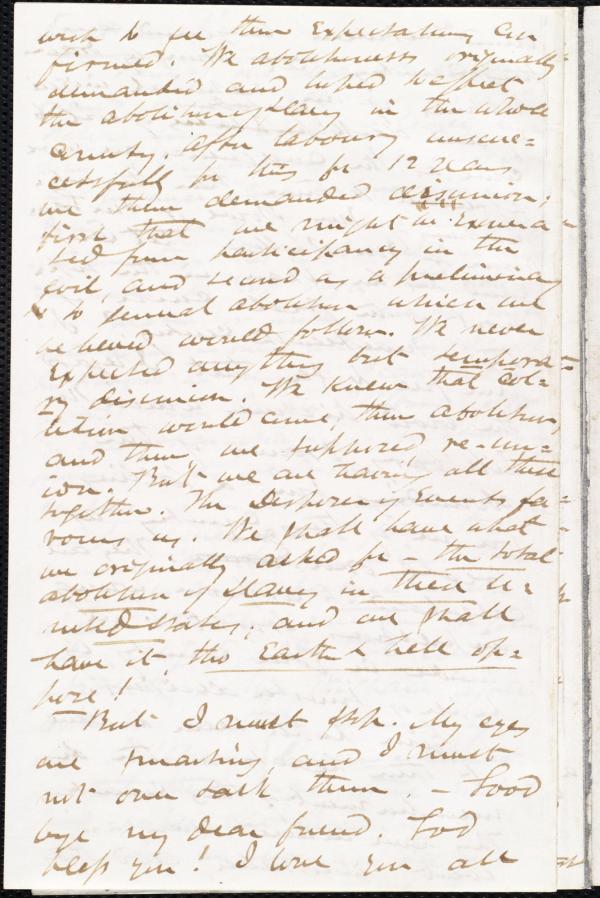 wish to see their expectations con
firmed. We abolitionists originally
demanded and hoped to effect
the abolition of slavery in the whole
country. After labouring unsuc=
cessfully for this for 12 years
we then demanded disunion;
first that we might be exonera=
ted from participancy in the
evil, and second as a preliminary
to general abolition which we
believed would follow. We never
expected anything but tempora=
ry disunion. We knew that col=
lision would come, then abolition,
and then we supposed re-un=
ion. But we are having all these
together. The Disposer of Events fa=
vours us. We shall have what
we originally asked for – the total
abolition of slavery in these U=
nited States; and we shall
have it, tho Earth & hell op=
pose!
But I must stop. My eyes
are smarting, and I must
not over task them. – Good
bye my dear friend. God
keep you! I love you all